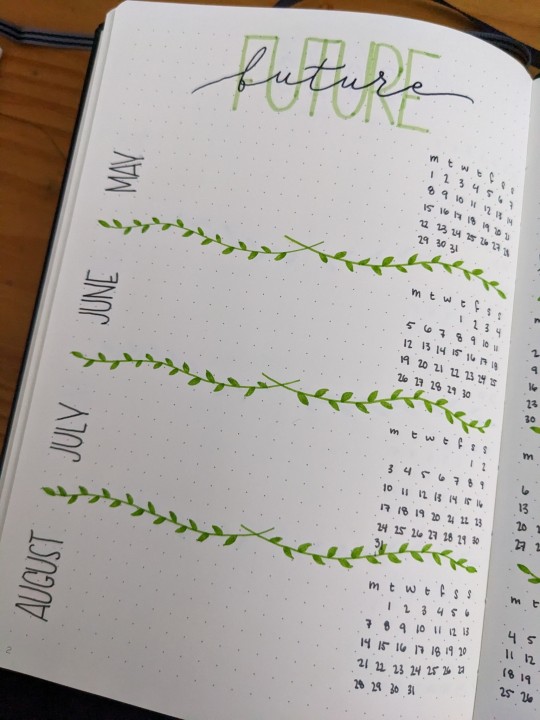 FUTURE
future
MAY
m t w t f s s
1 2 3 4 5 6 7
8 9 10 11 12 13 14
15 16 17 18 19 20 21
22 23 24 25 26 27 28
29 30 31
JUNE
m t w t f s s
1 2 3 4
5 6 7 8 9 10 11
12 13 14 15 16 17 18
19 20 21 22 23 24 25
26 27 28 29 30
JULY
m t w t f s s
1 2
3 4 5 6 7 8 9
10 11 12 13 14 15 16
17 18 19 20 21 22 23
24 25 26 27 28 29 30
31
AUGUST
m t w t f s s
1 2 3 4 5 6
7 8 9 10 11 12 13
14 15 16 17 18 19 20
21 22 23 24 25 26 27
28 29 30 31
2
2
9
16
23
30
m
6
13
20
27
m t
4 5
11 12
18 19
25 26